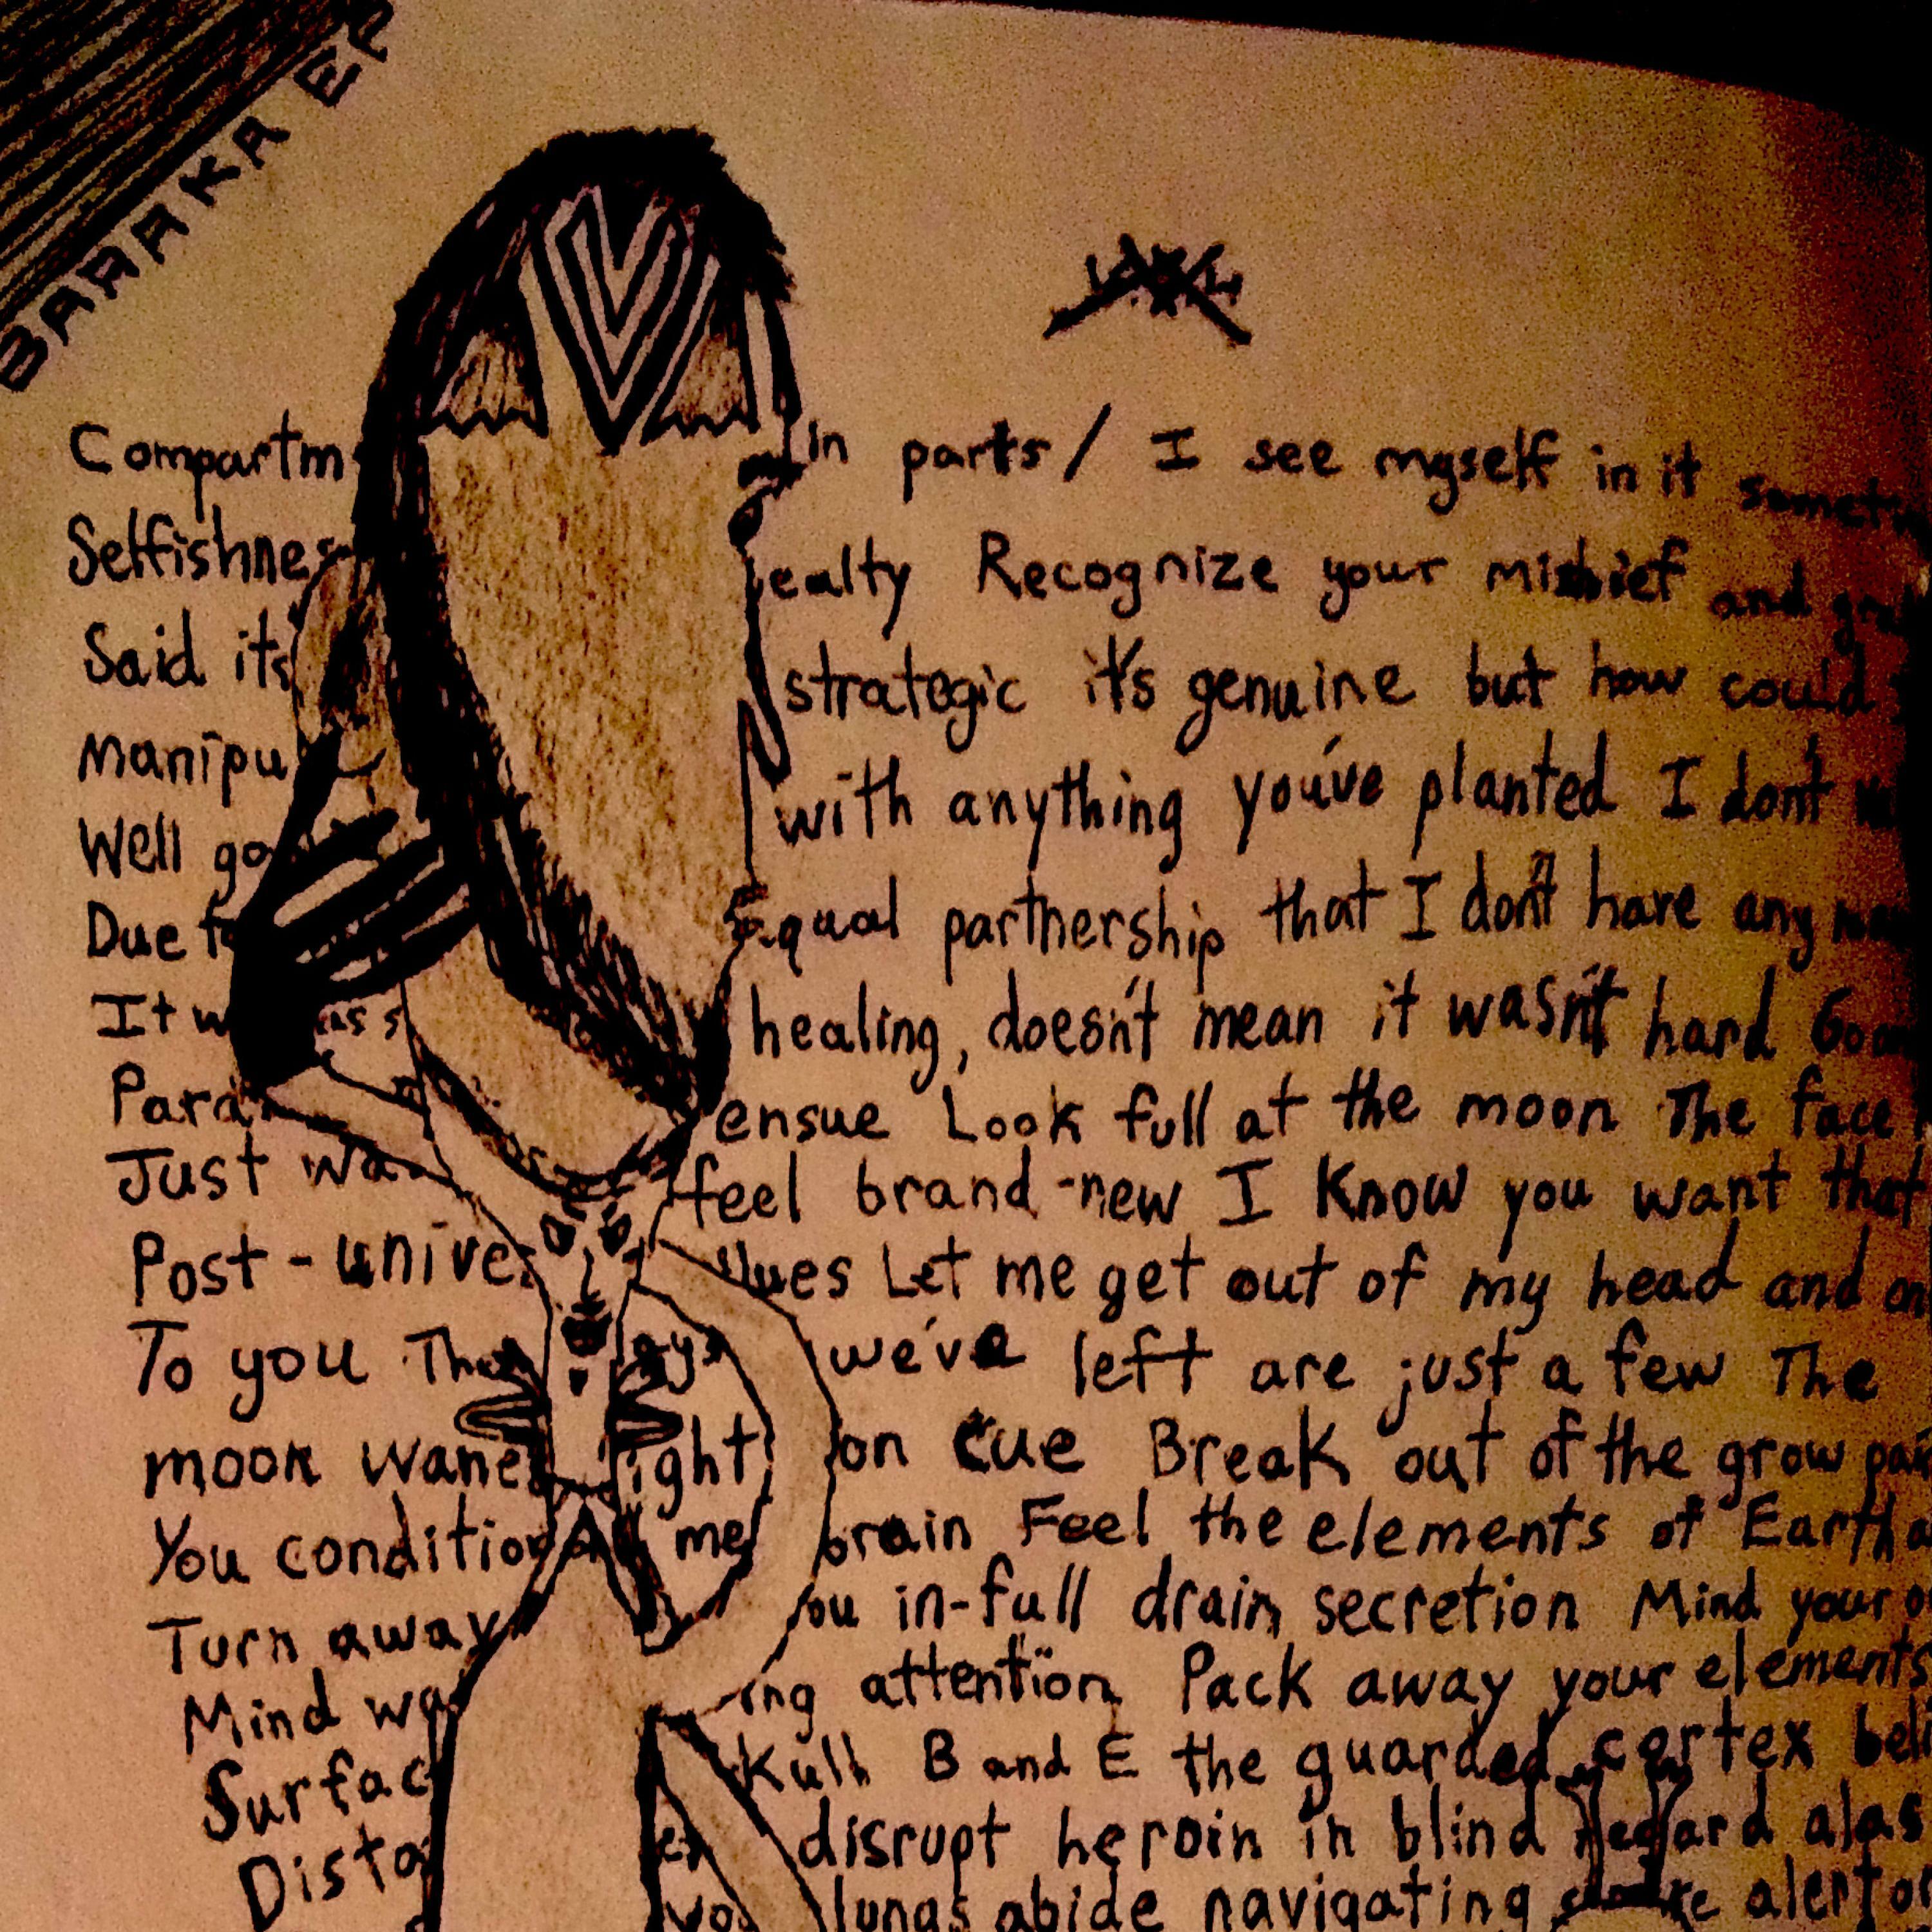 BARAKA
Compartm in parts/ I see myself in it
Selfishnes ealty Recognize your mishief and
Said its strategic it's genuine but how could
Manipu with anything you've planted I don't
Well go Equal partnership that I don't have any
Due to healing, doesn't mean it wasn't hard
It w as s ensue Look full at the moon The face
Para feel brand-new I know you want that
Just wa lues Let me get out of my head and
Post-univer we've left are just a few The
To you The ays on cue Break out of the grow
moon wanes light brain Feel the elements of Earth
You condition All me you in-full drain secretion Mind your
Turn away ing attention Pack away your elements
Mind wa Kull B and E the guarded cortex
Surfac disrupt heroin in blind regard alas
Disto er lungs abide navigating alert
yo